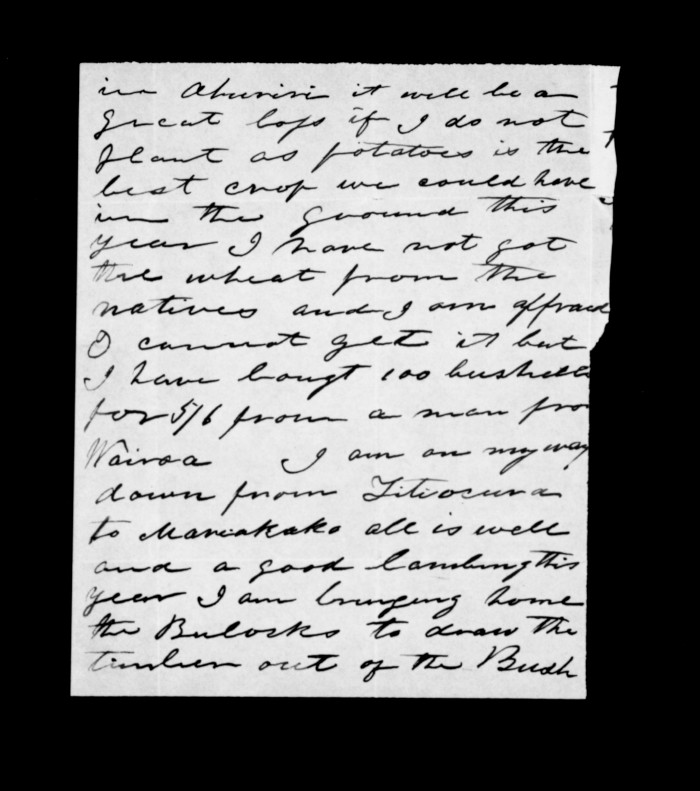 in Ahuriri it will be a
great loss if I do not
plant as potatoes is the
best crop we could have
in the ground this
year I have not got
the wheat from the
natives and I am affraid
I cannot get it but
I have bougt 100 bushells
for 5/6 from a man fro
Wairoa I am on my way
down from Titiocura
to Maraikakako all is well
and a good lambing this
year I am bringing home
the Bulocks to draw the
timber out of the Bush